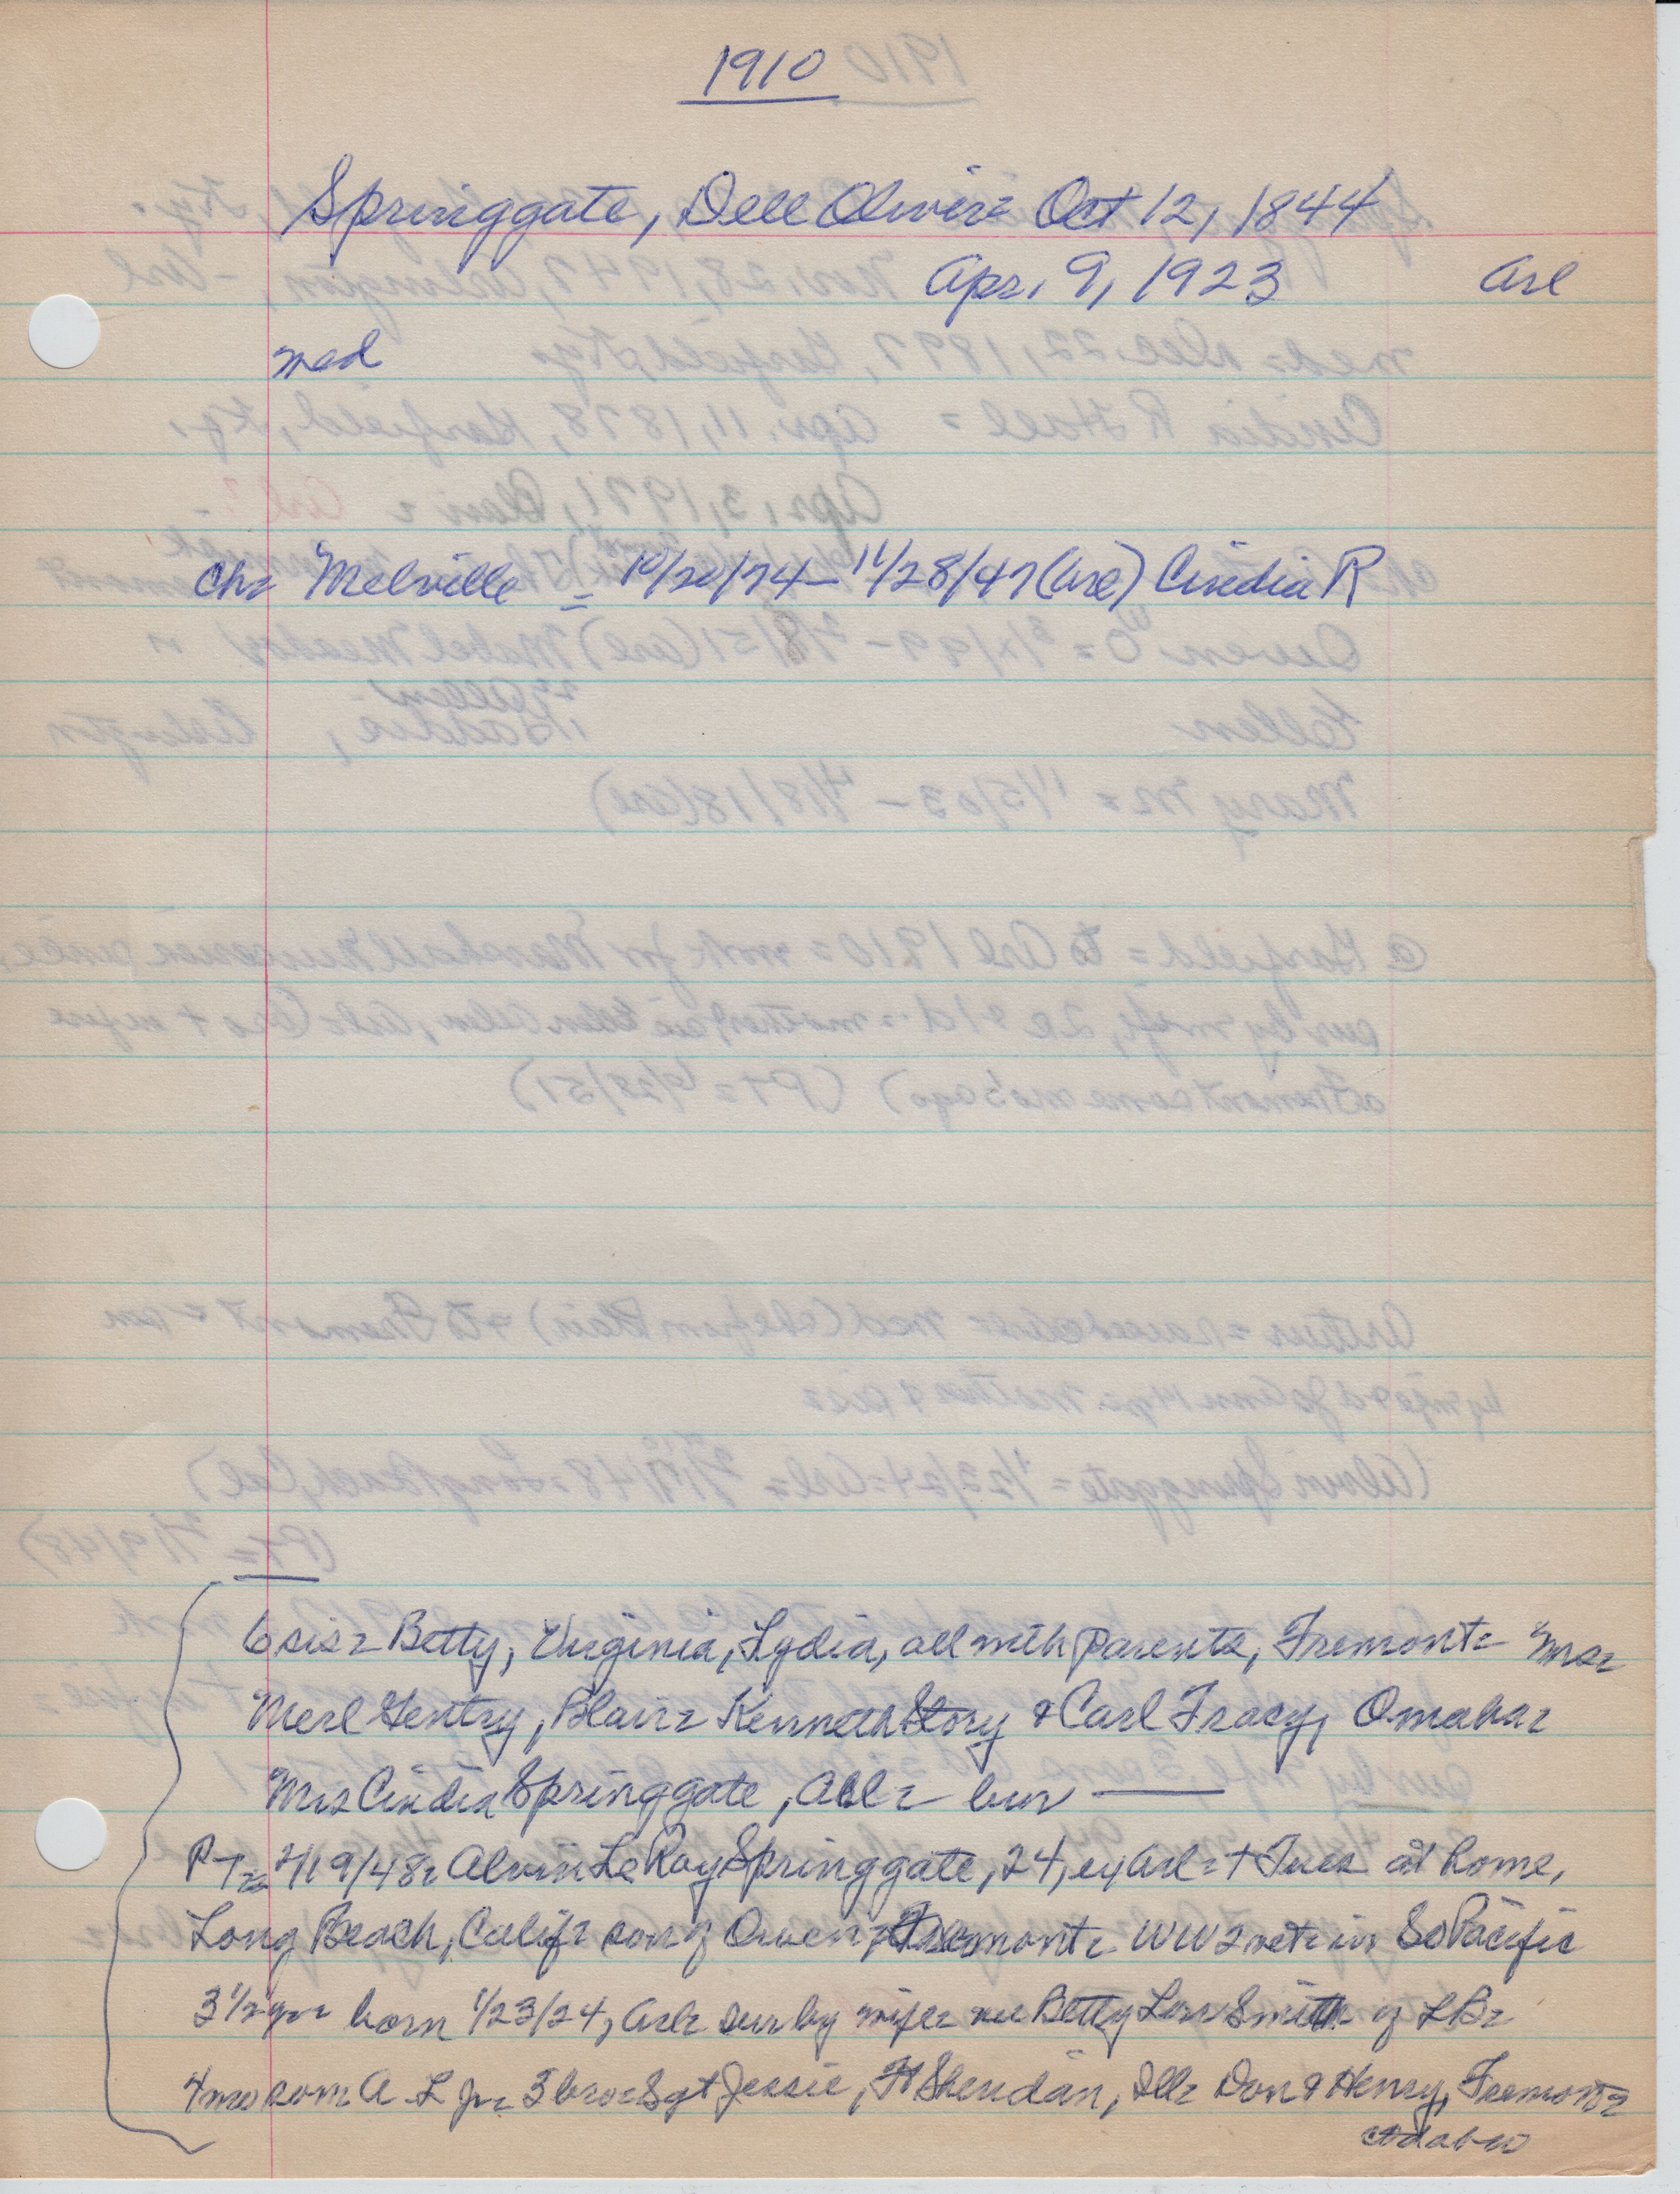 1910
Springgate, Dell Oliver= Oct 12, 1844
Apr. 9, 1923 Arl
med
Ch= Melville = 10/20/74 - 11/28/47 (Arl) Cindia R
6 sis= Betty, Virginia, Lydia, all with parents, Fremont= Mrs=
Merl Gentry, Blair= Kenneth Story & Carl Tracy, Omaha=
Mrs Cindia Springgate, Arl= bur
PT= 2/19/48= Alvin LeRoy Springgate, 24, ex Arl= + Tues at home,
Long Beach, Calif= son of Owen, Fremont= WW2 vet= in So Pacific
3 1/2 yr= born 1/23/24, Arl= sur by wife= nee Betty Lou Smith of LB=
4 mo son= A L Jr= 3 bro= Sgt Jessie, Ft Sheridan, Ill= Don & Henry, Fremont=